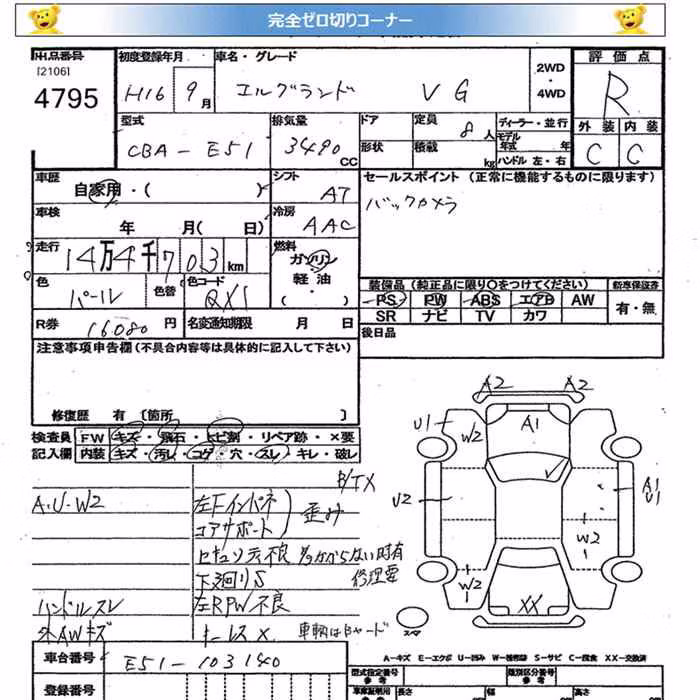 完全ゼロ切りコーナー
出品番号 初度登録年月 車名・グレード 2WD ・ 4WD 評価点
[2106]
4795 H16 9月 エルグランド VG R
型式 排気量 ドア 定員 8人 ディーラー・並行 外装 内装
CBA-E51 3490cc 形状 積載 kg モデル年式 年 ハンドル 左・右 C C
車歴 自家用・( ) シフト AT セールスポイント (正常に機能するものに限ります)
車検 年 月( 日) 冷房 AAC バックカメラ
走行 14万4千703km 燃料 ガソリン 軽油 ( ・ )
色 パール 色替 色コード QX1 装備品 (純正品に限り○をつけてください) 新車保証書
PS PW ABS エアB AW 有・無
SR ナビ TV カワ
R券 16080円 名変通知期限 月 日 後日品
注意事項申告欄 (不具合内容等は具体的に記入して下さい)
修復歴 有 〔箇所 〕
検査員 FW キズ・飛石・ヒビ割・リペア跡・×要
記入欄 内装 キズ・汚レ・コゲ・穴・スレ・キレ・破レ
A2 A2
U1 W2 A1
U2 A1 U1
W2
W2 XX
スペア
B/TX
A.U.W2 左Fインパネ
コアサポート 歪み
セキュリティ不良 かからない時有
下廻りS 修理要
ハンドルスレ 左RPW不良
外AWキズ キーレスX 車輌はBヤード
車台番号 E51-103140
登録番号
A-キズ E-エクボ U-凹み W-補修跡 S-サビ C-腐食 XX-交換済
型式指定番号 参考 類別区分番号 参考
車庫証明用 参考 長さ 幅 高さ